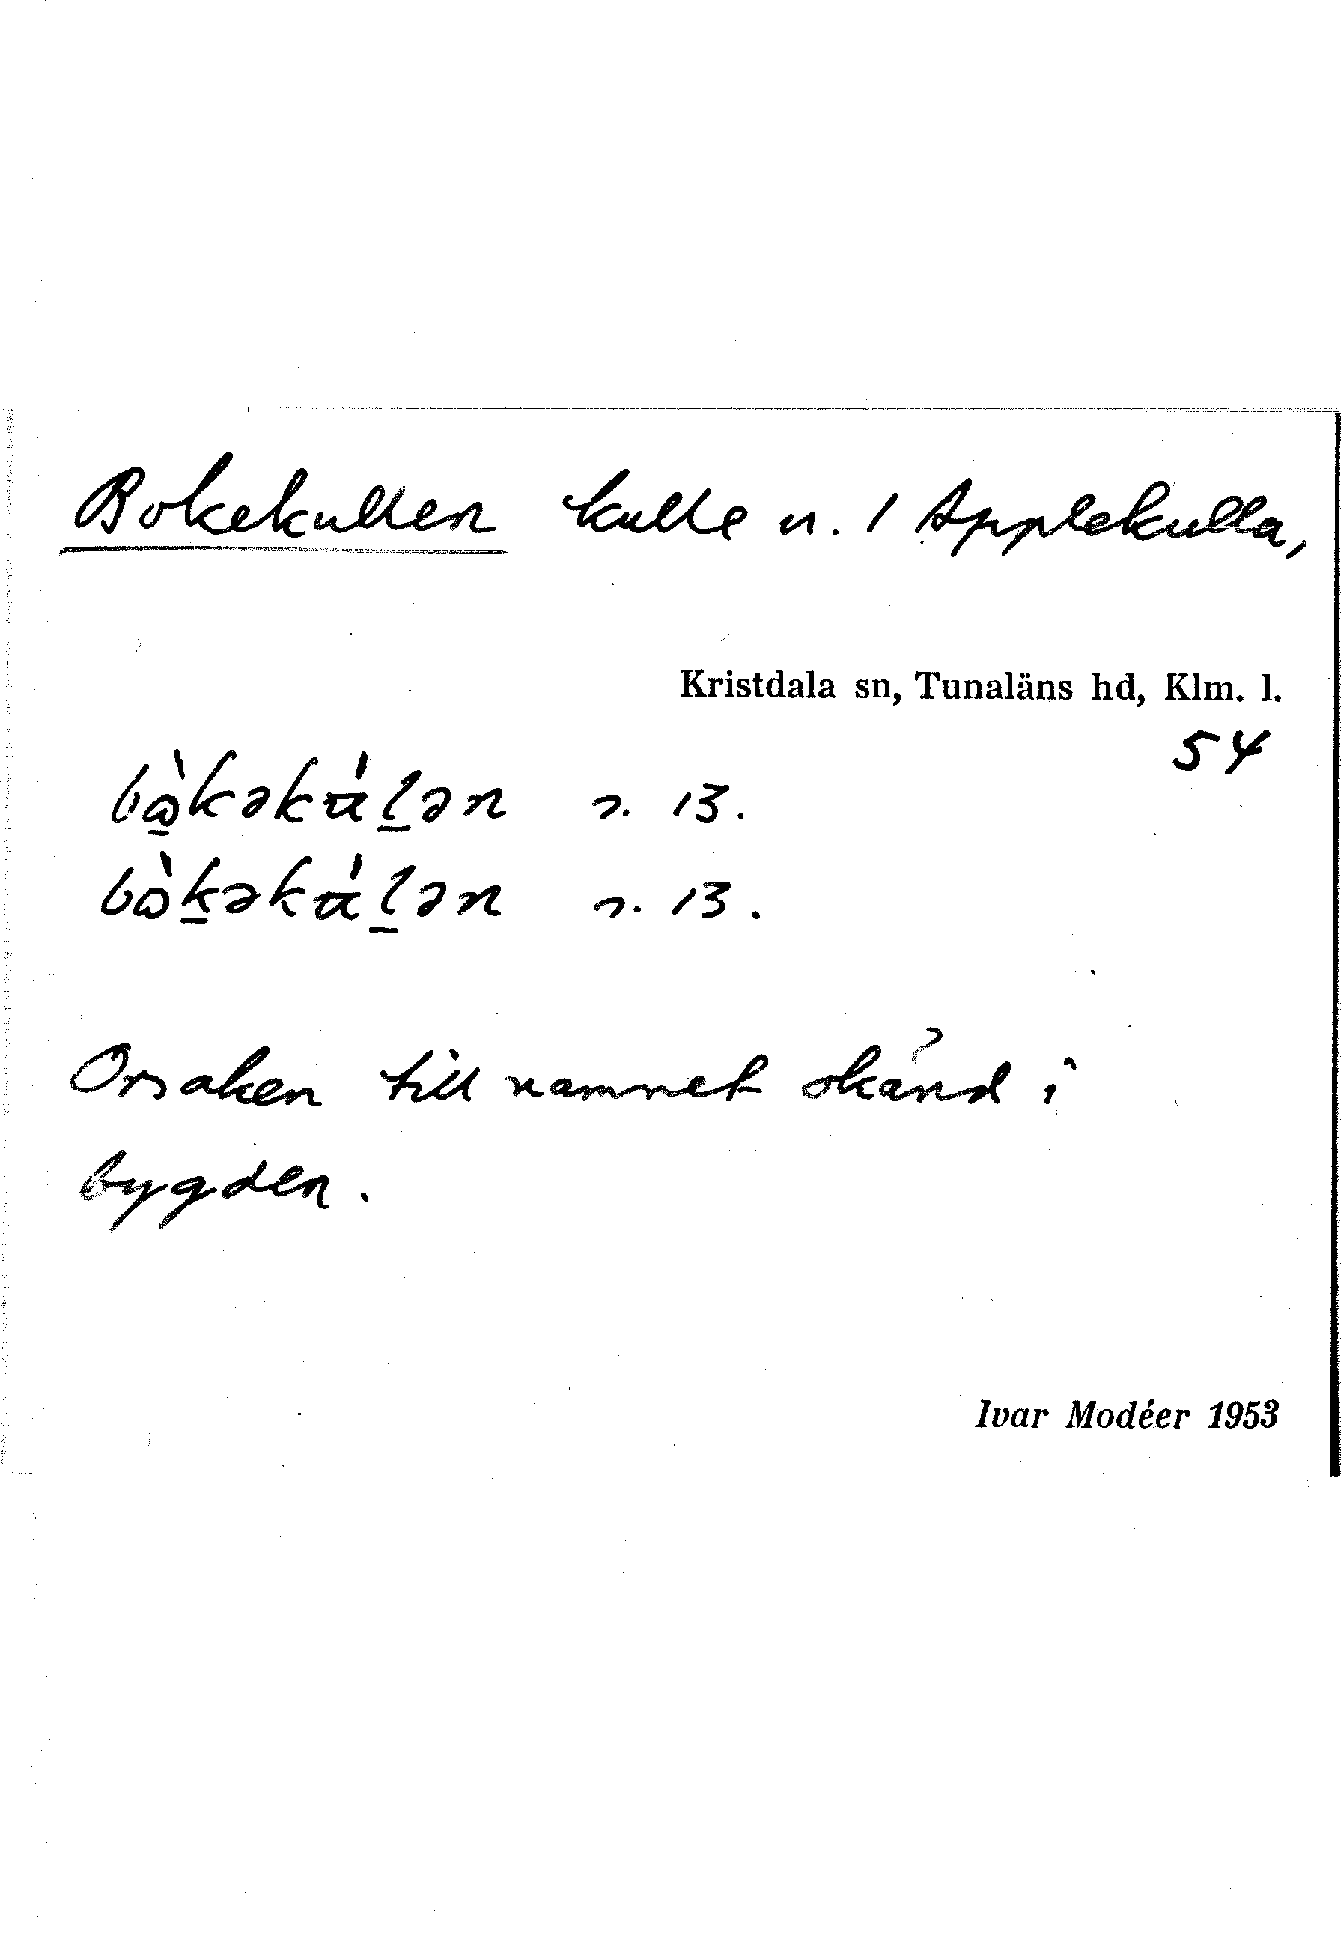 Bokekullen kulle n. 1 Applekulla,
Kristdala sn, Tunaläns hd, Klm. l.
54
bɷ̱̀kəkɑ́ḻən n. 13.
bɷ̀ḵəkɑ́ḻən n. 13.
Orsaken till namnet okänd i
bygden.
Ivar Modéer 1953